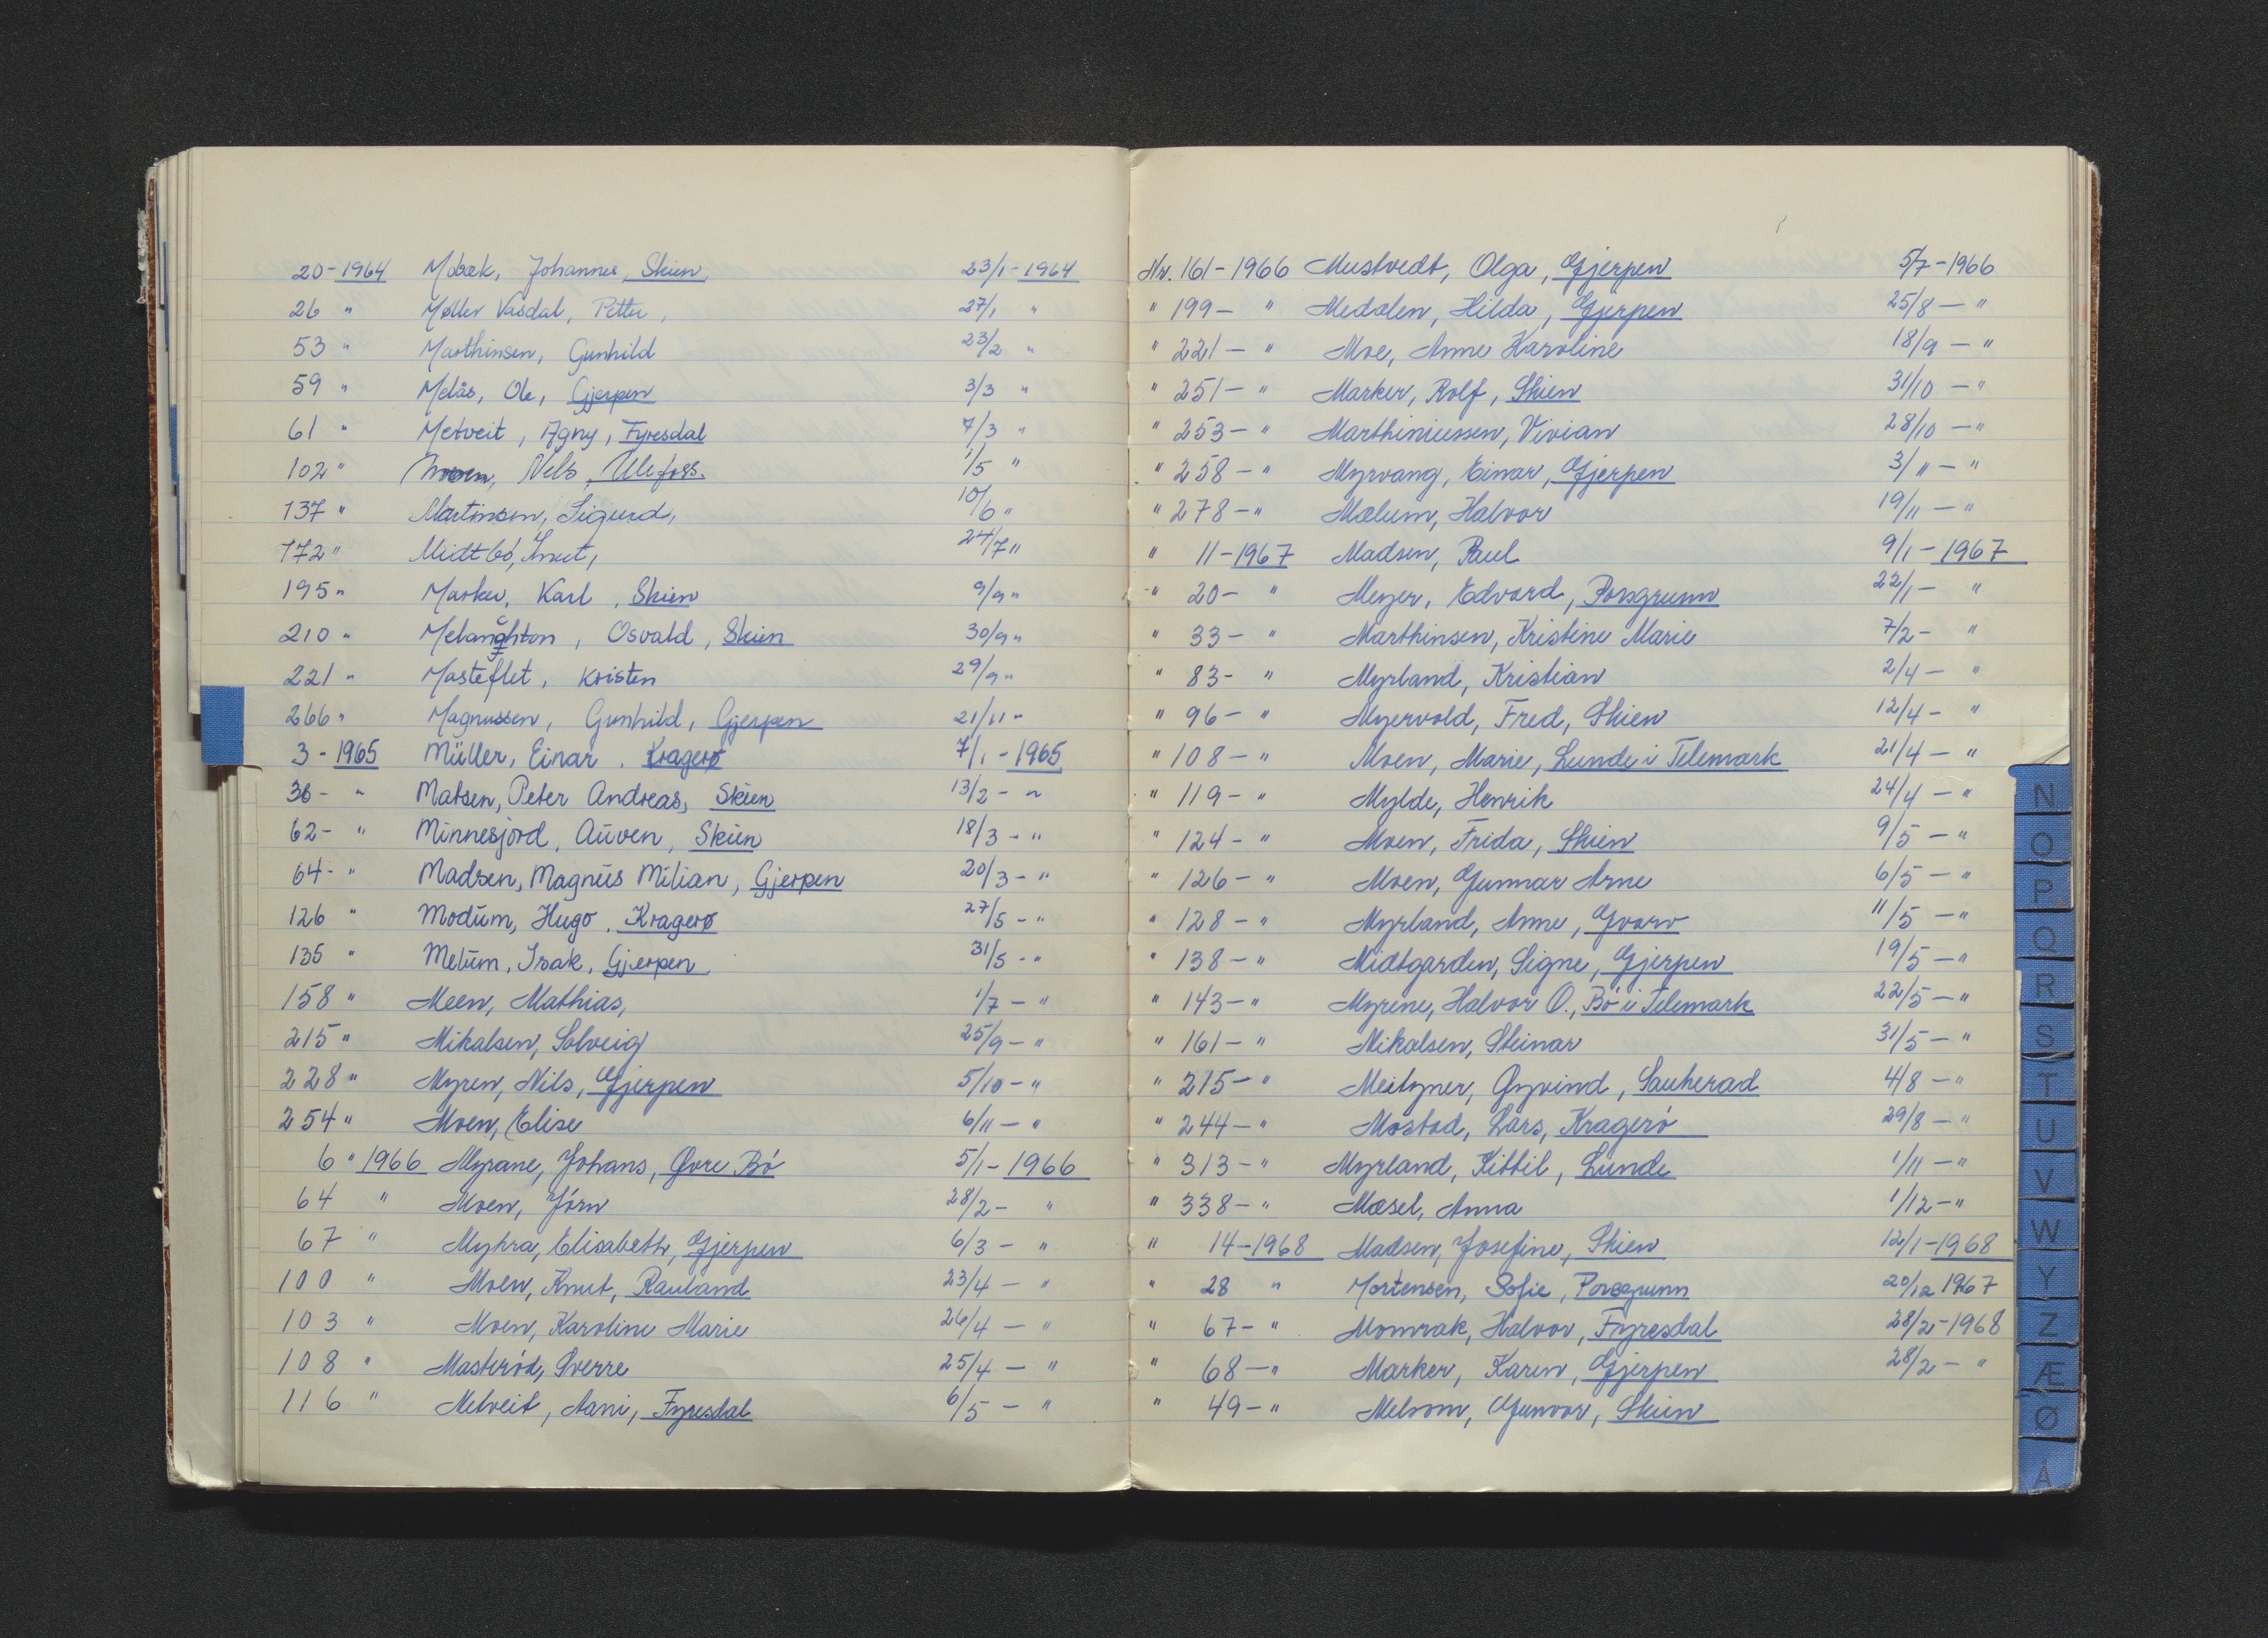 20-1964 Mobæk, Johannes, Skien, 23/1-1964
26 " Møller Vasdal, Petter, 27/1 "
53 " Marthinsen, Gunhild 23/2 "
59 " Melås, Ole, Gjerpen 3/3 "
61 " Metveit, Agny, Fyresdal 7/3 "
102 " Moen, Nels, Ulefoss. 1/5 "
137 " Martinsen, Sigurd, 10/6 "
172 " Midtbö, Knut, 24/7 "
195 " Marker, Karl, Skien 9/9 "
210 " Osvald, Skien 30/9 "
221 " Masteflet, Kristen 29/9 "
266 " Magnussen, Gunhild, Gjerpen 21/11 -
3-1965 Müller, Einar, Kragerø 7/1-1965
36- " Matsen, Peter Andreas, Skien 13/2- "
62- " Minnesjord, Auven, Skien 18/3- "
64- " Madsen, Magnus Milian, Gjerpen 20/3- "
126 " Modum, Hugo, Kragerø 27/5- "
135 " Melum, Isak, Gjerpen 31/5- "
158 " Meen, Mathias, 1/7- "
215 " Mikalsen, Solveig 25/9- "
228 " Myren, Nils, Gjerpen 5/10- "
254 " Moen, Elise 6/11- "
6 " 1966 Myrane, Johans, Øvre Bö 5/1-1966
64 " Moen, Jörn 28/2- "
67 " Myhra, Elisabeth, Gjerpen 6/3- "
100 " Moen, Knut, Rauland 23/4- "
103 " Moen, Karoline Marie 26/4- "
108 " Masteröd, Sverre 25/4- "
116 " Metveit, Aani, Fyresdal 6/5- "
Nr. 161-1966 Mustvedt, Olga, Gjerpen 5/7-1966
" 199- " Medalen, Hilda, Gjerpen 25/8- "
" 221- " Moe, Anne Karoline 18/9- "
" 251- " Marker, Rolf, Skien 31/10- "
" 253- " Marthiniussen, Vivian 28/10- "
" 258- " Myrvang, Einar, Gjerpen 3/11- "
" 278- " Mælum, Halvor 19/11- "
" 11-1967 Madsen, Paul 9/1-1967
" 20- " Meyer, Edvard, Porsgrunn 22/1- "
" 33- " Marthinsen, Kristine Marie 7/2- "
" 83- " Myrland, Kristian 2/4- "
" 96- " Myervold, Fred, Skien 12/4- "
" 108- " Moen, Marie, Lunde i Telemark 21/4- "
" 119- " Mylde, Henrik 24/4- "
" 124- " Moen, Frida, Skien 9/5- "
" 126- " Moen, Gunnar Arne 6/5- "
" 128- " Myrland, Anne, Gvarv 11/5- "
" 138- " Midtgarden, Signe, Gjerpen 19/5- "
" 143- " Myrene, Halvor O., Bö i Telemark 22/5- "
" 161- " Mikalsen, Steinar 31/5- "
" 215- " Meitzner, Øyvind, Sauherad 4/8- "
" 244- " Mostad, Lars, Kragerö 29/8- "
" 313- " Myrland, Kittil, Lunde 1/11- "
" 338- " Mæsel, Anna 1/12- "
" 14-1968 Madsen, Josefine, Skien 12/1-1968
" 28 " Mortensen, Sofie, Porsgrunn 20/12 1967
" 67- " Momrak, Halvor, Fyresdal 28/2-1968
" 68- " Marker, Karen, Gjerpen 28/2- "
" 49- " Melsom, Gunvor, Skien
N
O
P
Q
R
S
T
U
V
W
Y
Z
Æ
Ø
Å